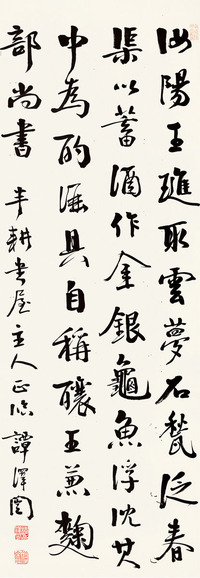 汝陽王璡取雲夢石甃泛春
渠以蓄酒作金銀龜魚浮沈其
中為酌酒具自稱釀王兼麴
部尚書 半耕書屋主人正臨 譚澤闓